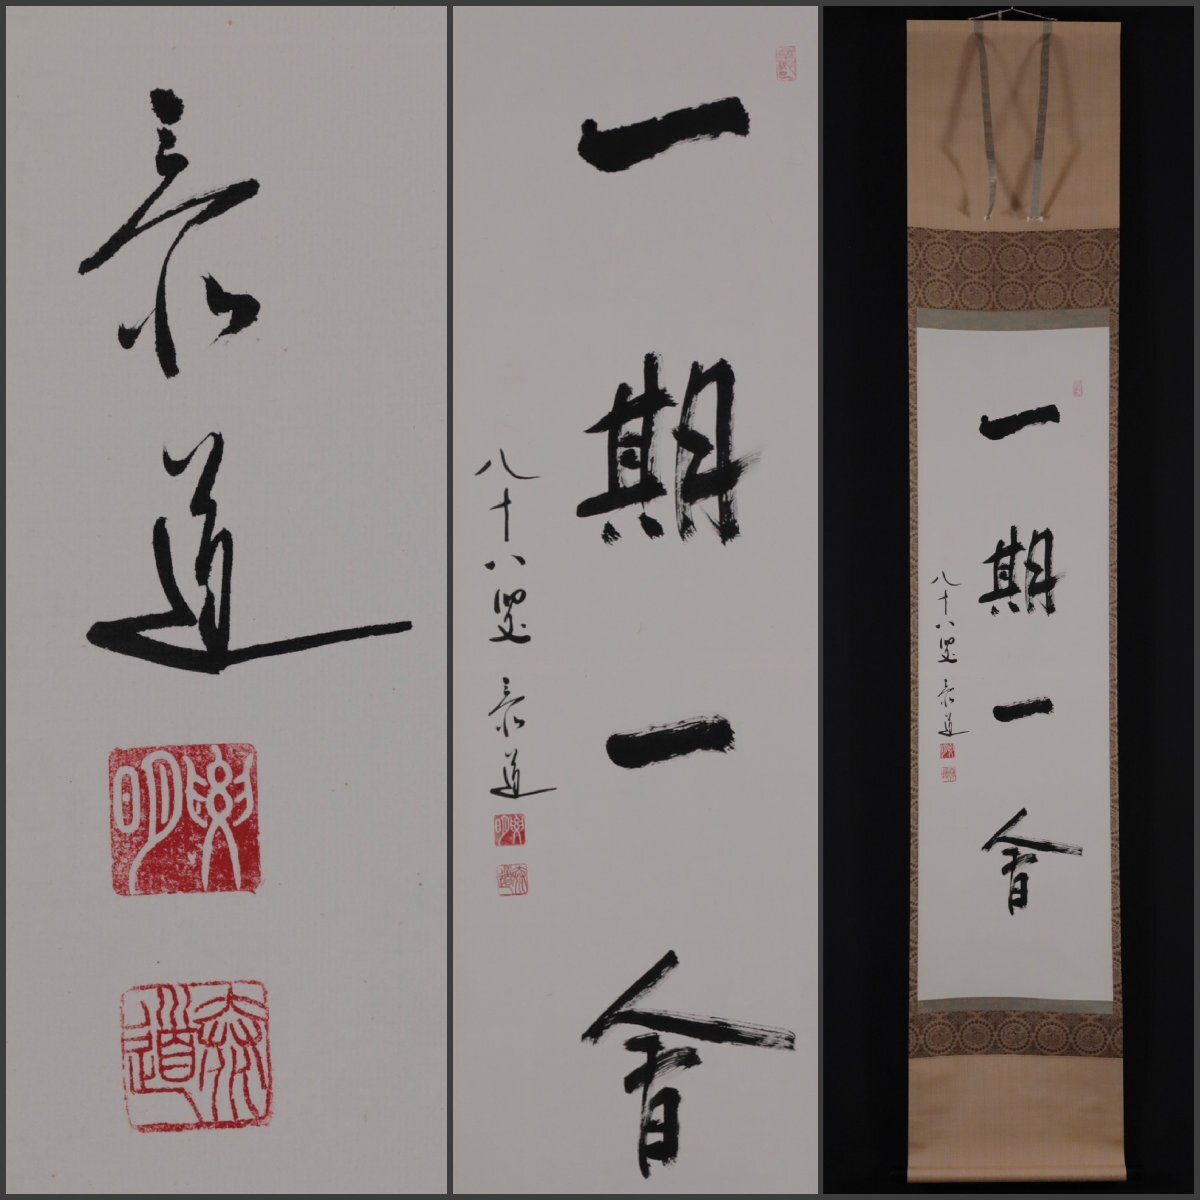 泰道
泰道
一期一會
八十八叟 泰道
泰道
一期一會
八十八叟 泰道